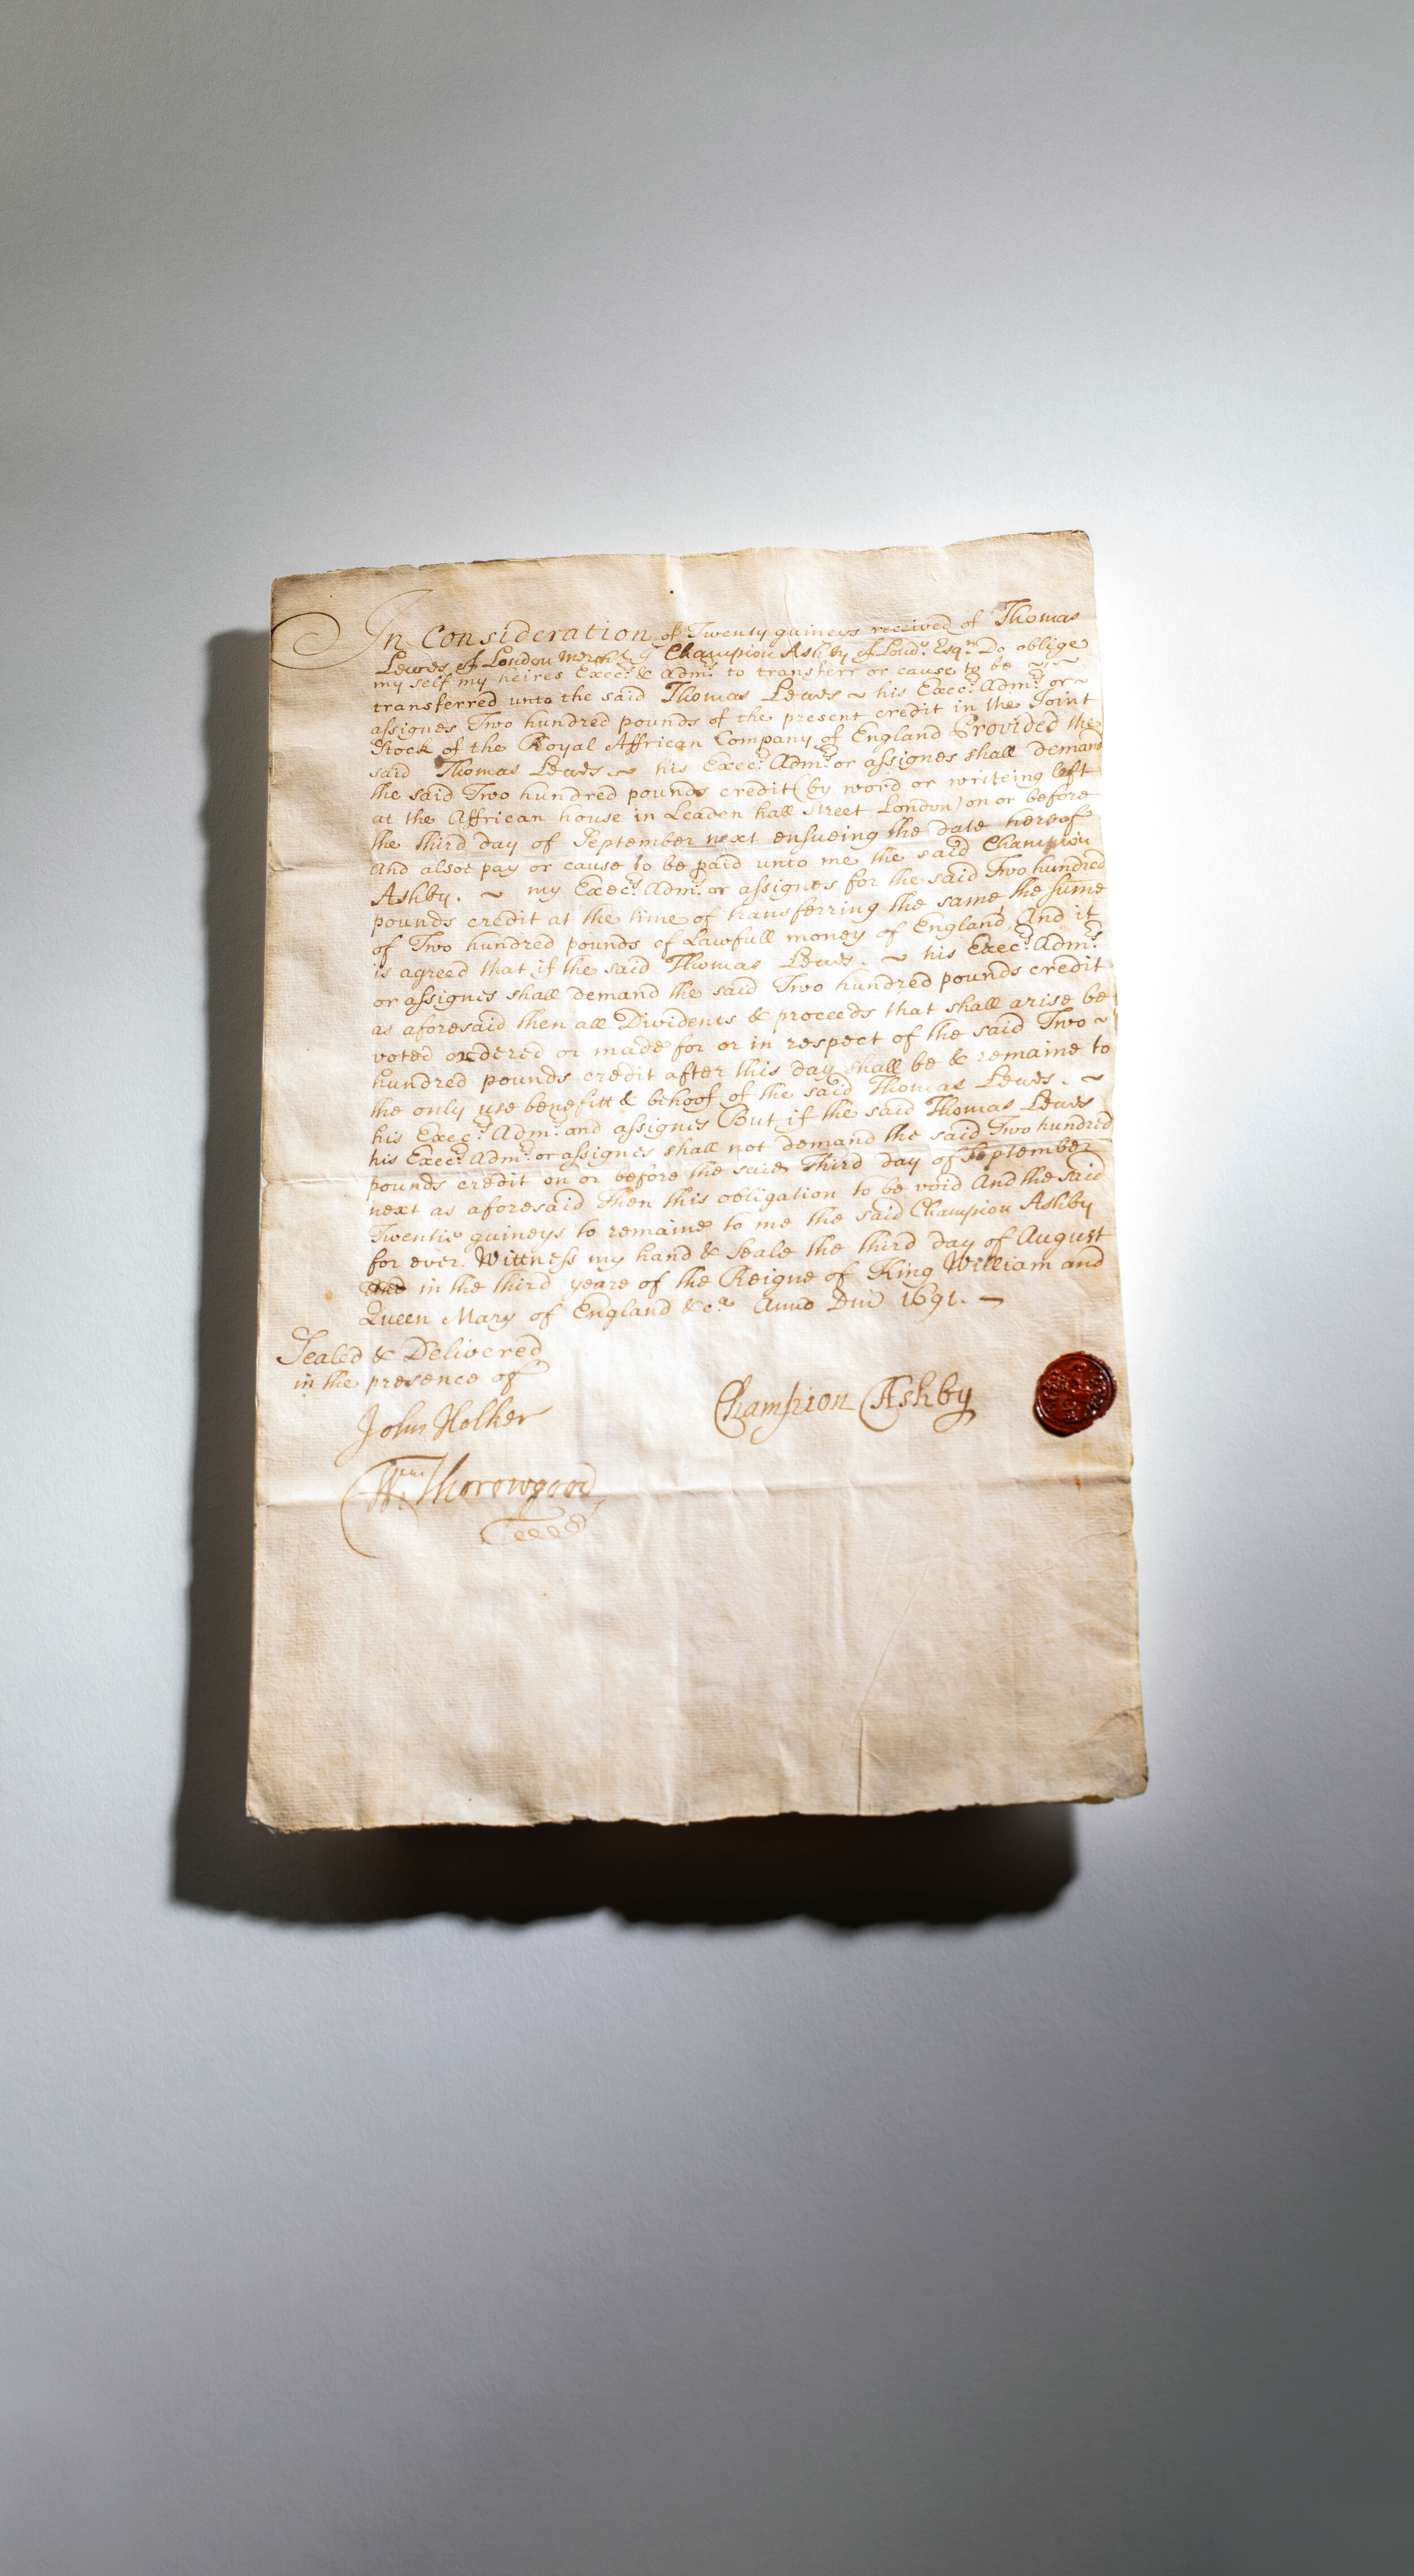 In Consideration of Twenty guineys received of Thomas
Lewes of London Merchᵗ Champion Ashby of Londᵒ: Esqʳ Do oblige
my self my heires Execʳˢ & Admʳˢ to transferr or cause to be ~ ~
transferred unto the said Thomas Lewes ~ his Execʳˢ Admʳˢ or ~
assignes Two hundred pounds of the present credit in the Joint
Stock of the Royal Affrican Company of England Provided the
said Thomas Lewes ~ his Execʳˢ Admʳˢ or assignes shall demand
the said Two hundred pounds credit (by word or writeing left
at the Affrican house in Leaden hall Street London) on or before
the third day of September next ensueing the date hereof
And alsoe pay or cause to be paid unto me the said Champion
Ashby. ~ my Execʳˢ Admʳˢ or assignes for the said Two hundred
pounds credit at the time of transferring the same, the sume
of Two hundred pounds of Lawfull money of England, And it
is agreed that if the said Thomas Lewes. ~ his Execʳˢ Admʳˢ
or assignes shall demand the said Two hundred pounds credit
as aforesaid then all Dividents & proceeds that shall arise be
voted ordered or made for or in respect of the said Two ~
hundred pounds credit after this day shall be & remaine to
the only use benefitt & behoof of the said Thomas Lewes. ~
his Execʳˢ Admʳˢ and assignes But if the said Thomas Lewes
his Execʳˢ Admʳˢ or assignes shall not demand the said Two hundred
pounds credit on or before the said Third day of September
next as aforesaid Then this obligation to be void And the said
Twentie guineys to remaine to me the said Champion Ashby
for ever. Wittness my hand & Seale the third day of August
in the third yeare of the Reigne of King William and
Queen Mary of England &cᵃ Anno Dni 1691. —
Sealed & Delivered
in the presence of
John Holker
Champion Ashby
Wᵐ: Thorowgood